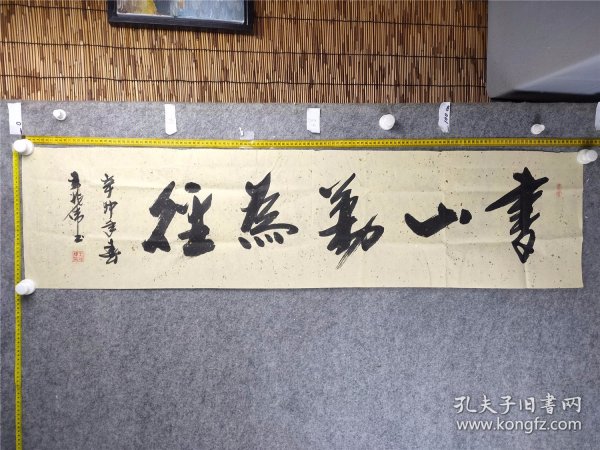 書山勤為徑
辛卯年春
孔夫子旧書网
www.kongfz.com